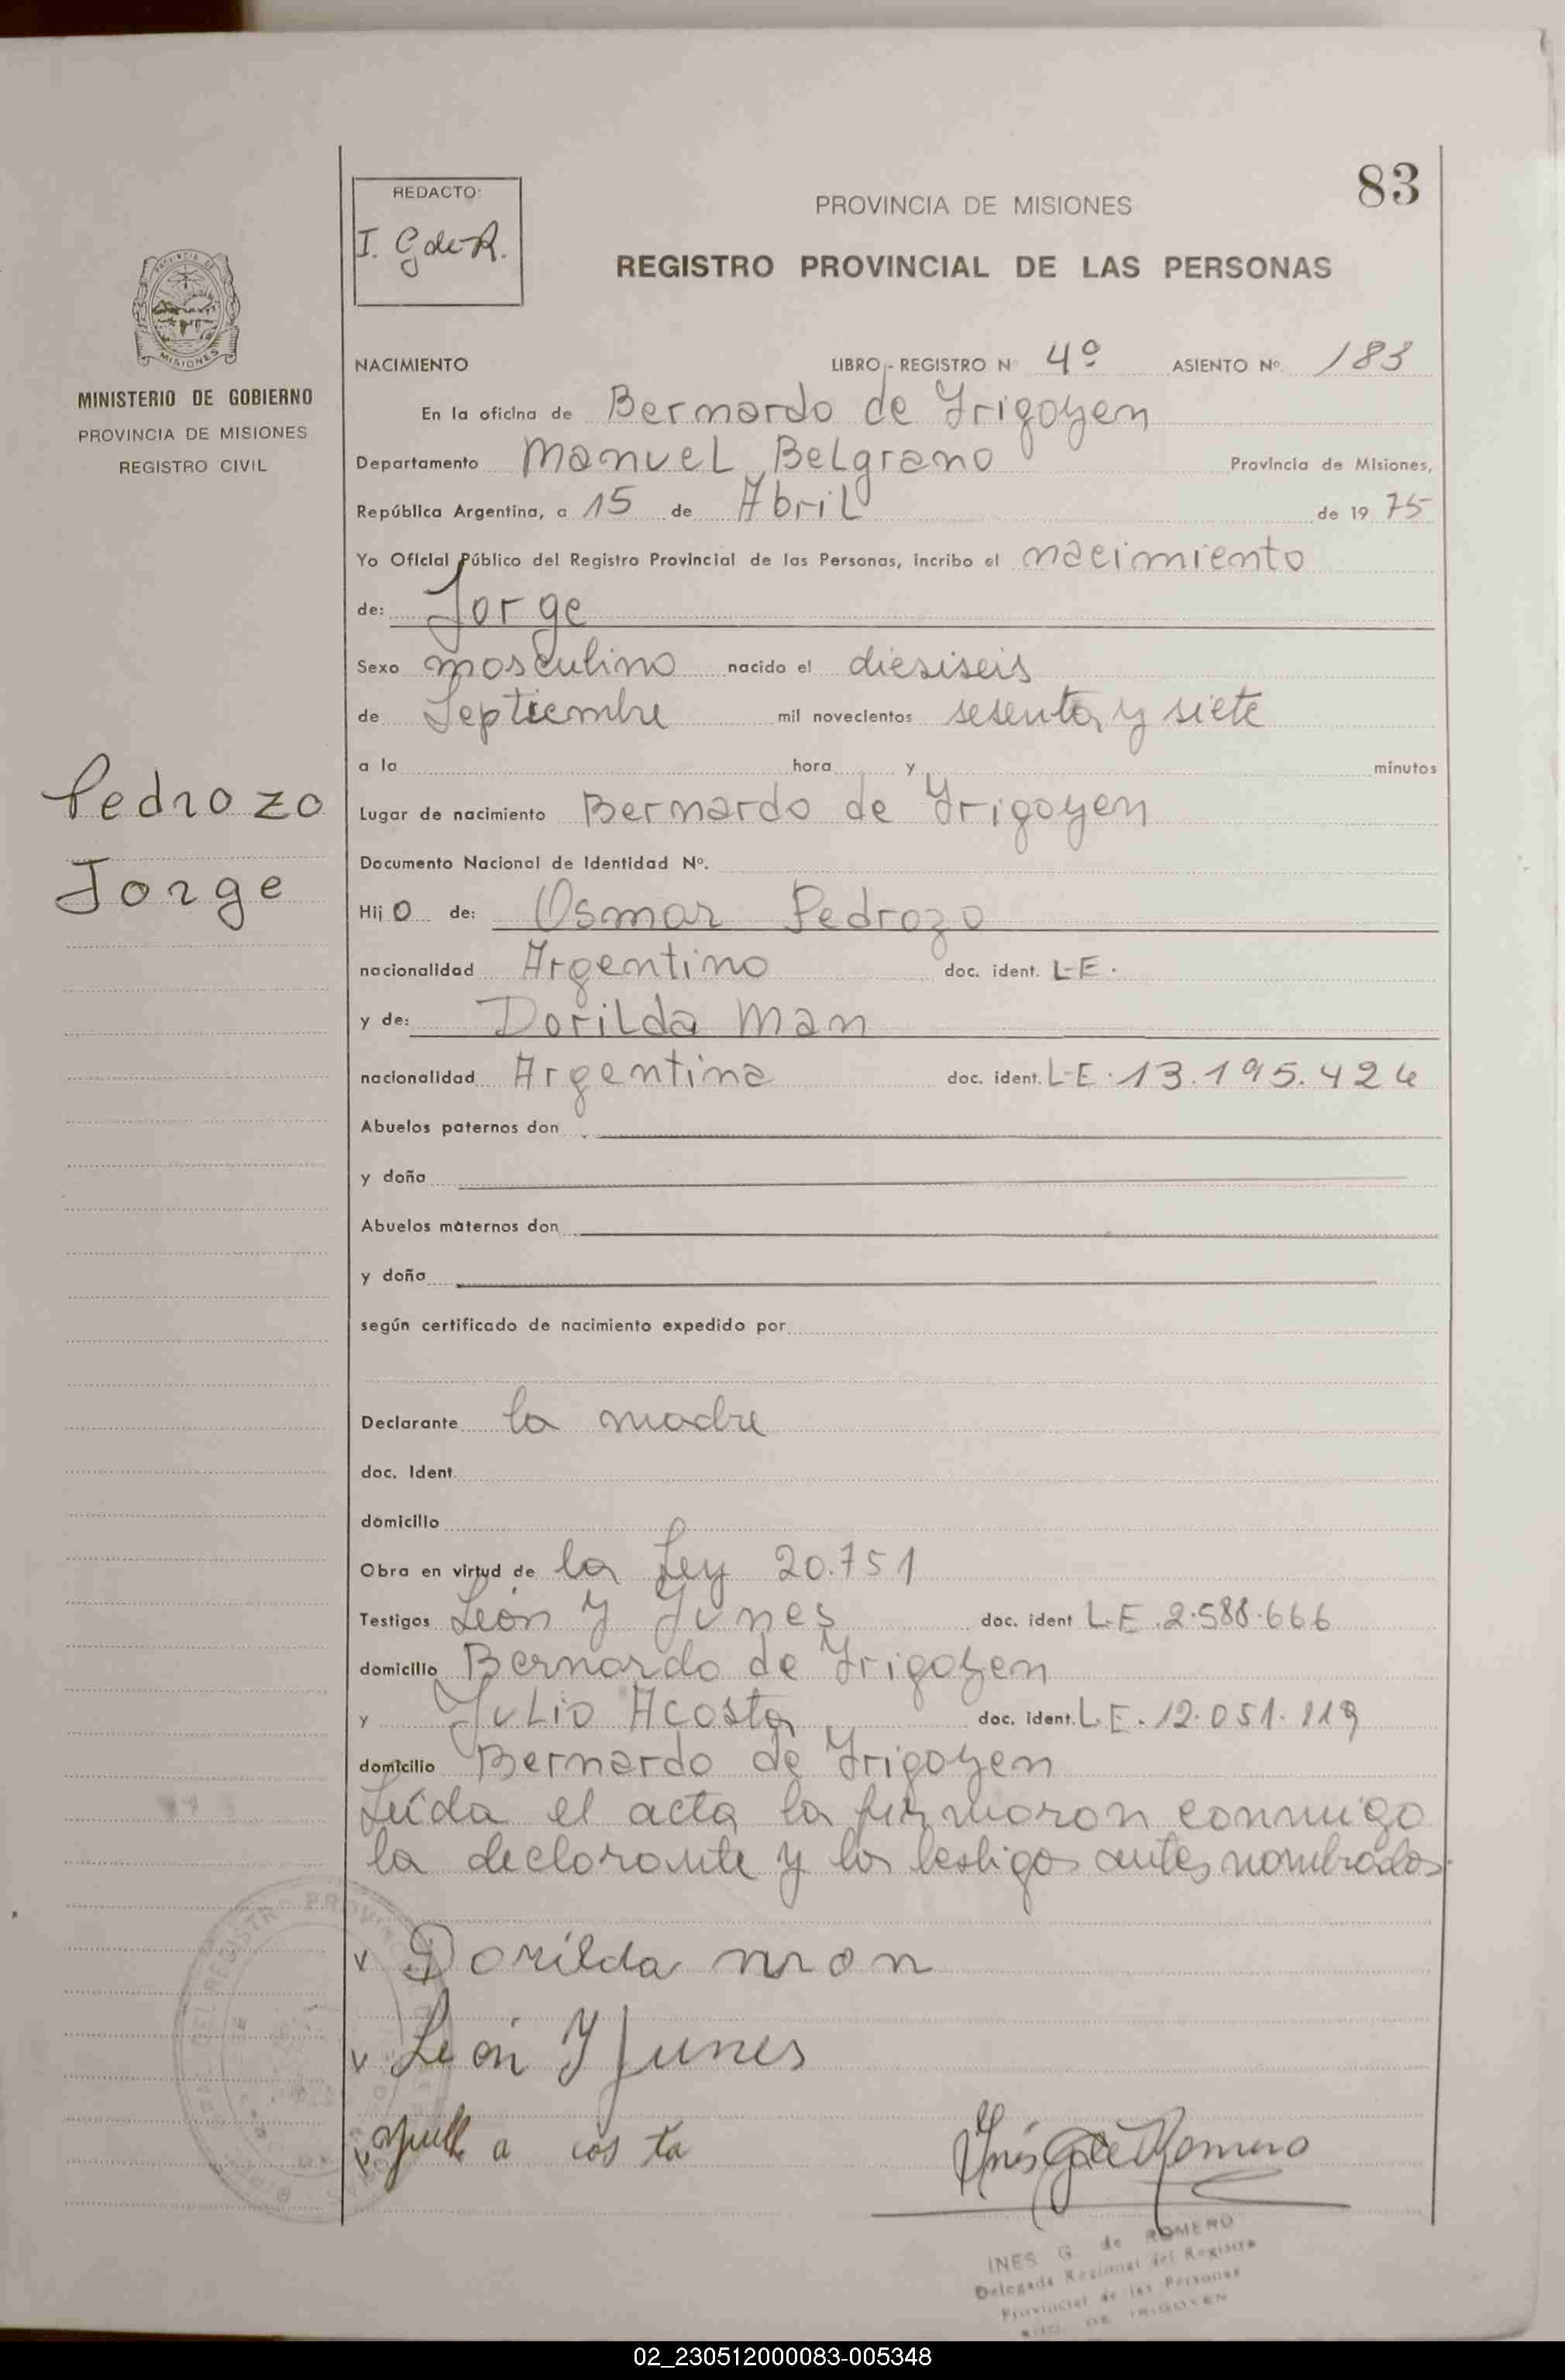 83
REDACTO:
I. G de R.
PROVINCIA DE MISIONES
REGISTRO PROVINCIAL DE LAS PERSONAS
MISIONES
MINISTERIO DE GOBIERNO
PROVINCIA DE MISIONES
REGISTRO CIVIL
NACIMIENTO LIBRO - REGISTRO Nº 4º ASIENTO Nº. 183
En la oficina de Bernardo de Yrigoyen
Departamento Manuel Belgrano Provincia de Misiones,
República Argentina, a 15 de Abril de 19 75
Yo Oficial Público del Registro Provincial de las Personas, incribo el nacimiento
de: Jorge
Sexo masculino nacido el diesiseis
de Septiembre mil novecientos sesenta y siete
a la hora y minutos
Pedrozo
Jorge
Lugar de nacimiento Bernardo de Yrigoyen
Documento Nacional de Identidad Nº.
Hij o de: Osmar Pedrozo
nacionalidad Argentino doc. ident. L-E.
y de: Dorilda Man
nacionalidad Argentina doc. ident. L-E. 13.195.424
Abuelos paternos don
y doña
Abuelos maternos don
y doña
según certificado de nacimiento expedido por
Declarante la madre
doc. Ident.
domicilio
Obra en virtud de la Ley 20.751
Testigos León Y Yunes doc. ident L.E. 2.588.666
domicilio Bernardo de Yrigoyen
y Julio Acosta doc. ident. L.E. 12.051.119
domicilio Bernardo de Yrigoyen
Leída el acta la firmaron conmigo
la declarante y los testigos antes nombrados.
v Dorilda man
v León Y Junes
v a cos ta
Inés G de Romero
INES G. de ROMERO
Delegada Regional del Registro
Provincial de las Personas
DE IRIGOYEN
02_230512000083-005348